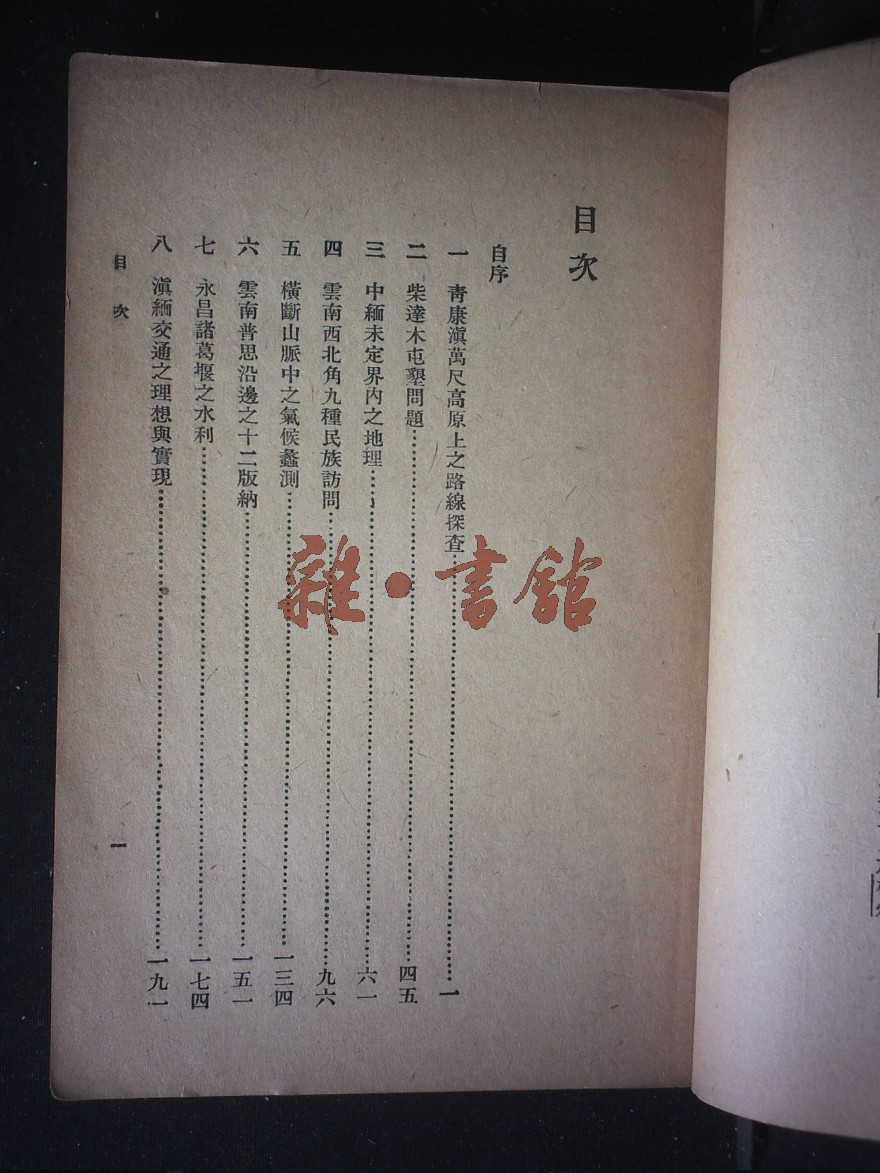 目次
自序
一 青康滇萬尺高原上之路線探查…一
二 柴達木屯墾問題…四五
三 中緬未定界內之地理…六一
四 雲南西北角九種民族訪問…九六
五 橫斷山脈中之氣候蠡測…一三四
六 雲南普思沿邊之十二版納…一五一
七 永昌諸葛堰之水利…一七四
八 滇緬交通之理想與實現…一九一
目次 一
雜·書館